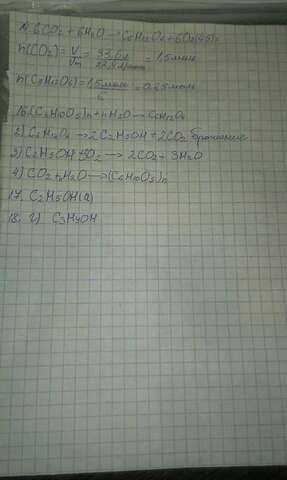 6CO2 + 6H2O → C6H12O6 + 6O2
n(CO2) = V/Vm = 33,6л/22,4л/моль = 1,5моль
n(C6H12O6) = 1,5моль/6 = 0,25моль
(C6H10O5)n + nH2O → C6H12O6
2) C6H12O6 → 2C2H5OH + 2CO2 брожение
3) C2H5OH + 3O2 → 2CO2 + 3H2O
4) CO2 + H2O → (C6H10O5)n
17. C2H5OH
18. г) C3H7OH